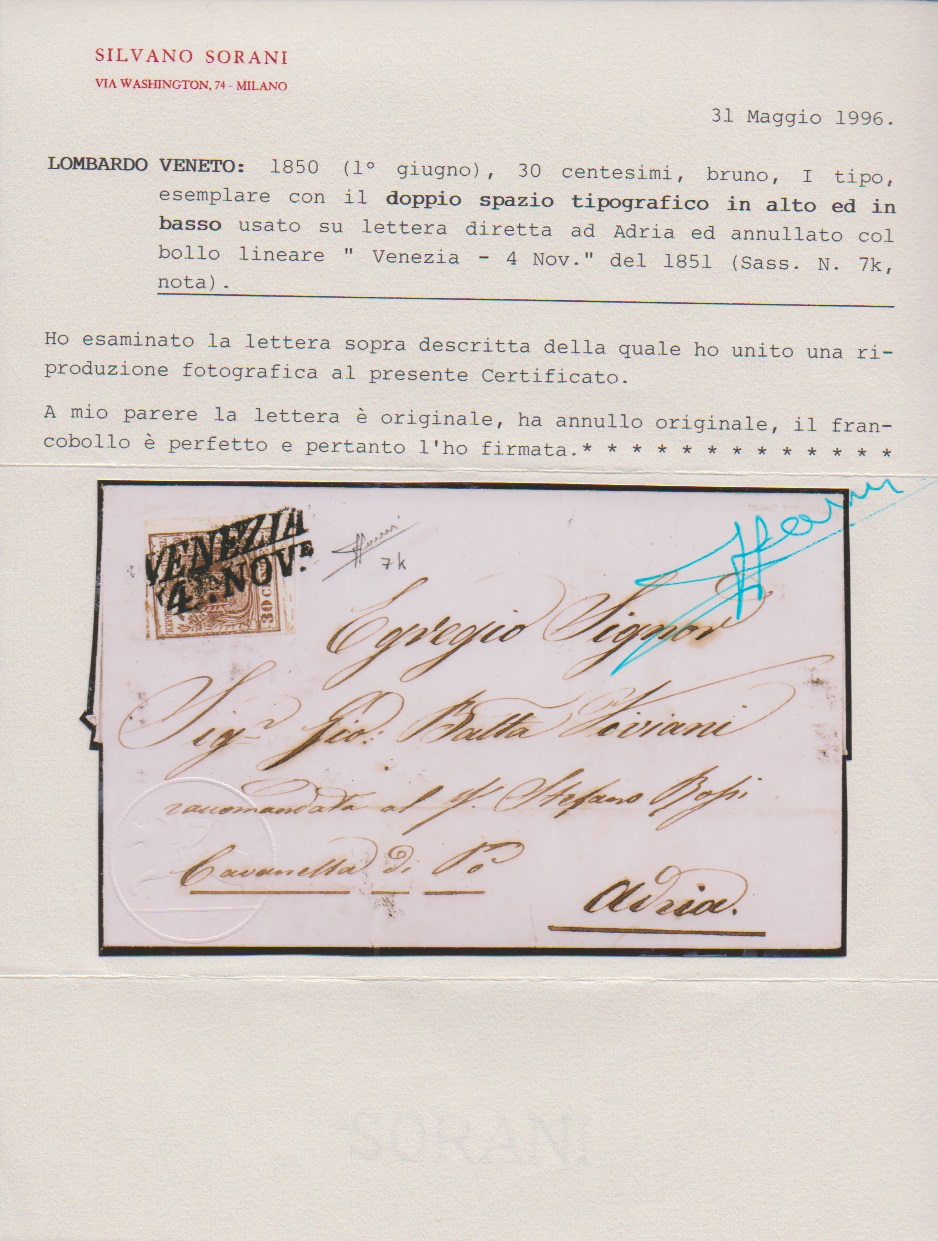 SILVANO SORANI
VIA WASHINGTON, 74 - MILANO
31 Maggio 1996.
LOMBARDO VENETO: 1850 (1º giugno), 30 centesimi, bruno, I tipo,
esemplare con il doppio spazio tipografico in alto ed in
basso usato su lettera diretta ad Adria ed annullato col
bollo lineare " Venezia - 4 Nov." del 1851 (Sass. N. 7k,
nota).
Ho esaminato la lettera sopra descritta della quale ho unito una ri-
produzione fotografica al presente Certificato.
A mio parere la lettera è originale, ha annullo originale, il fran-
cobollo è perfetto e pertanto l'ho firmata.* * * * * * * * * * * * *
VENEZIA
4. NOV.E
30 C
7k
Egregio Signor
Sigr Gio: Batta Viviani
raccomandata al Stefano
Cavanella di Pò
Adria.
SORANI